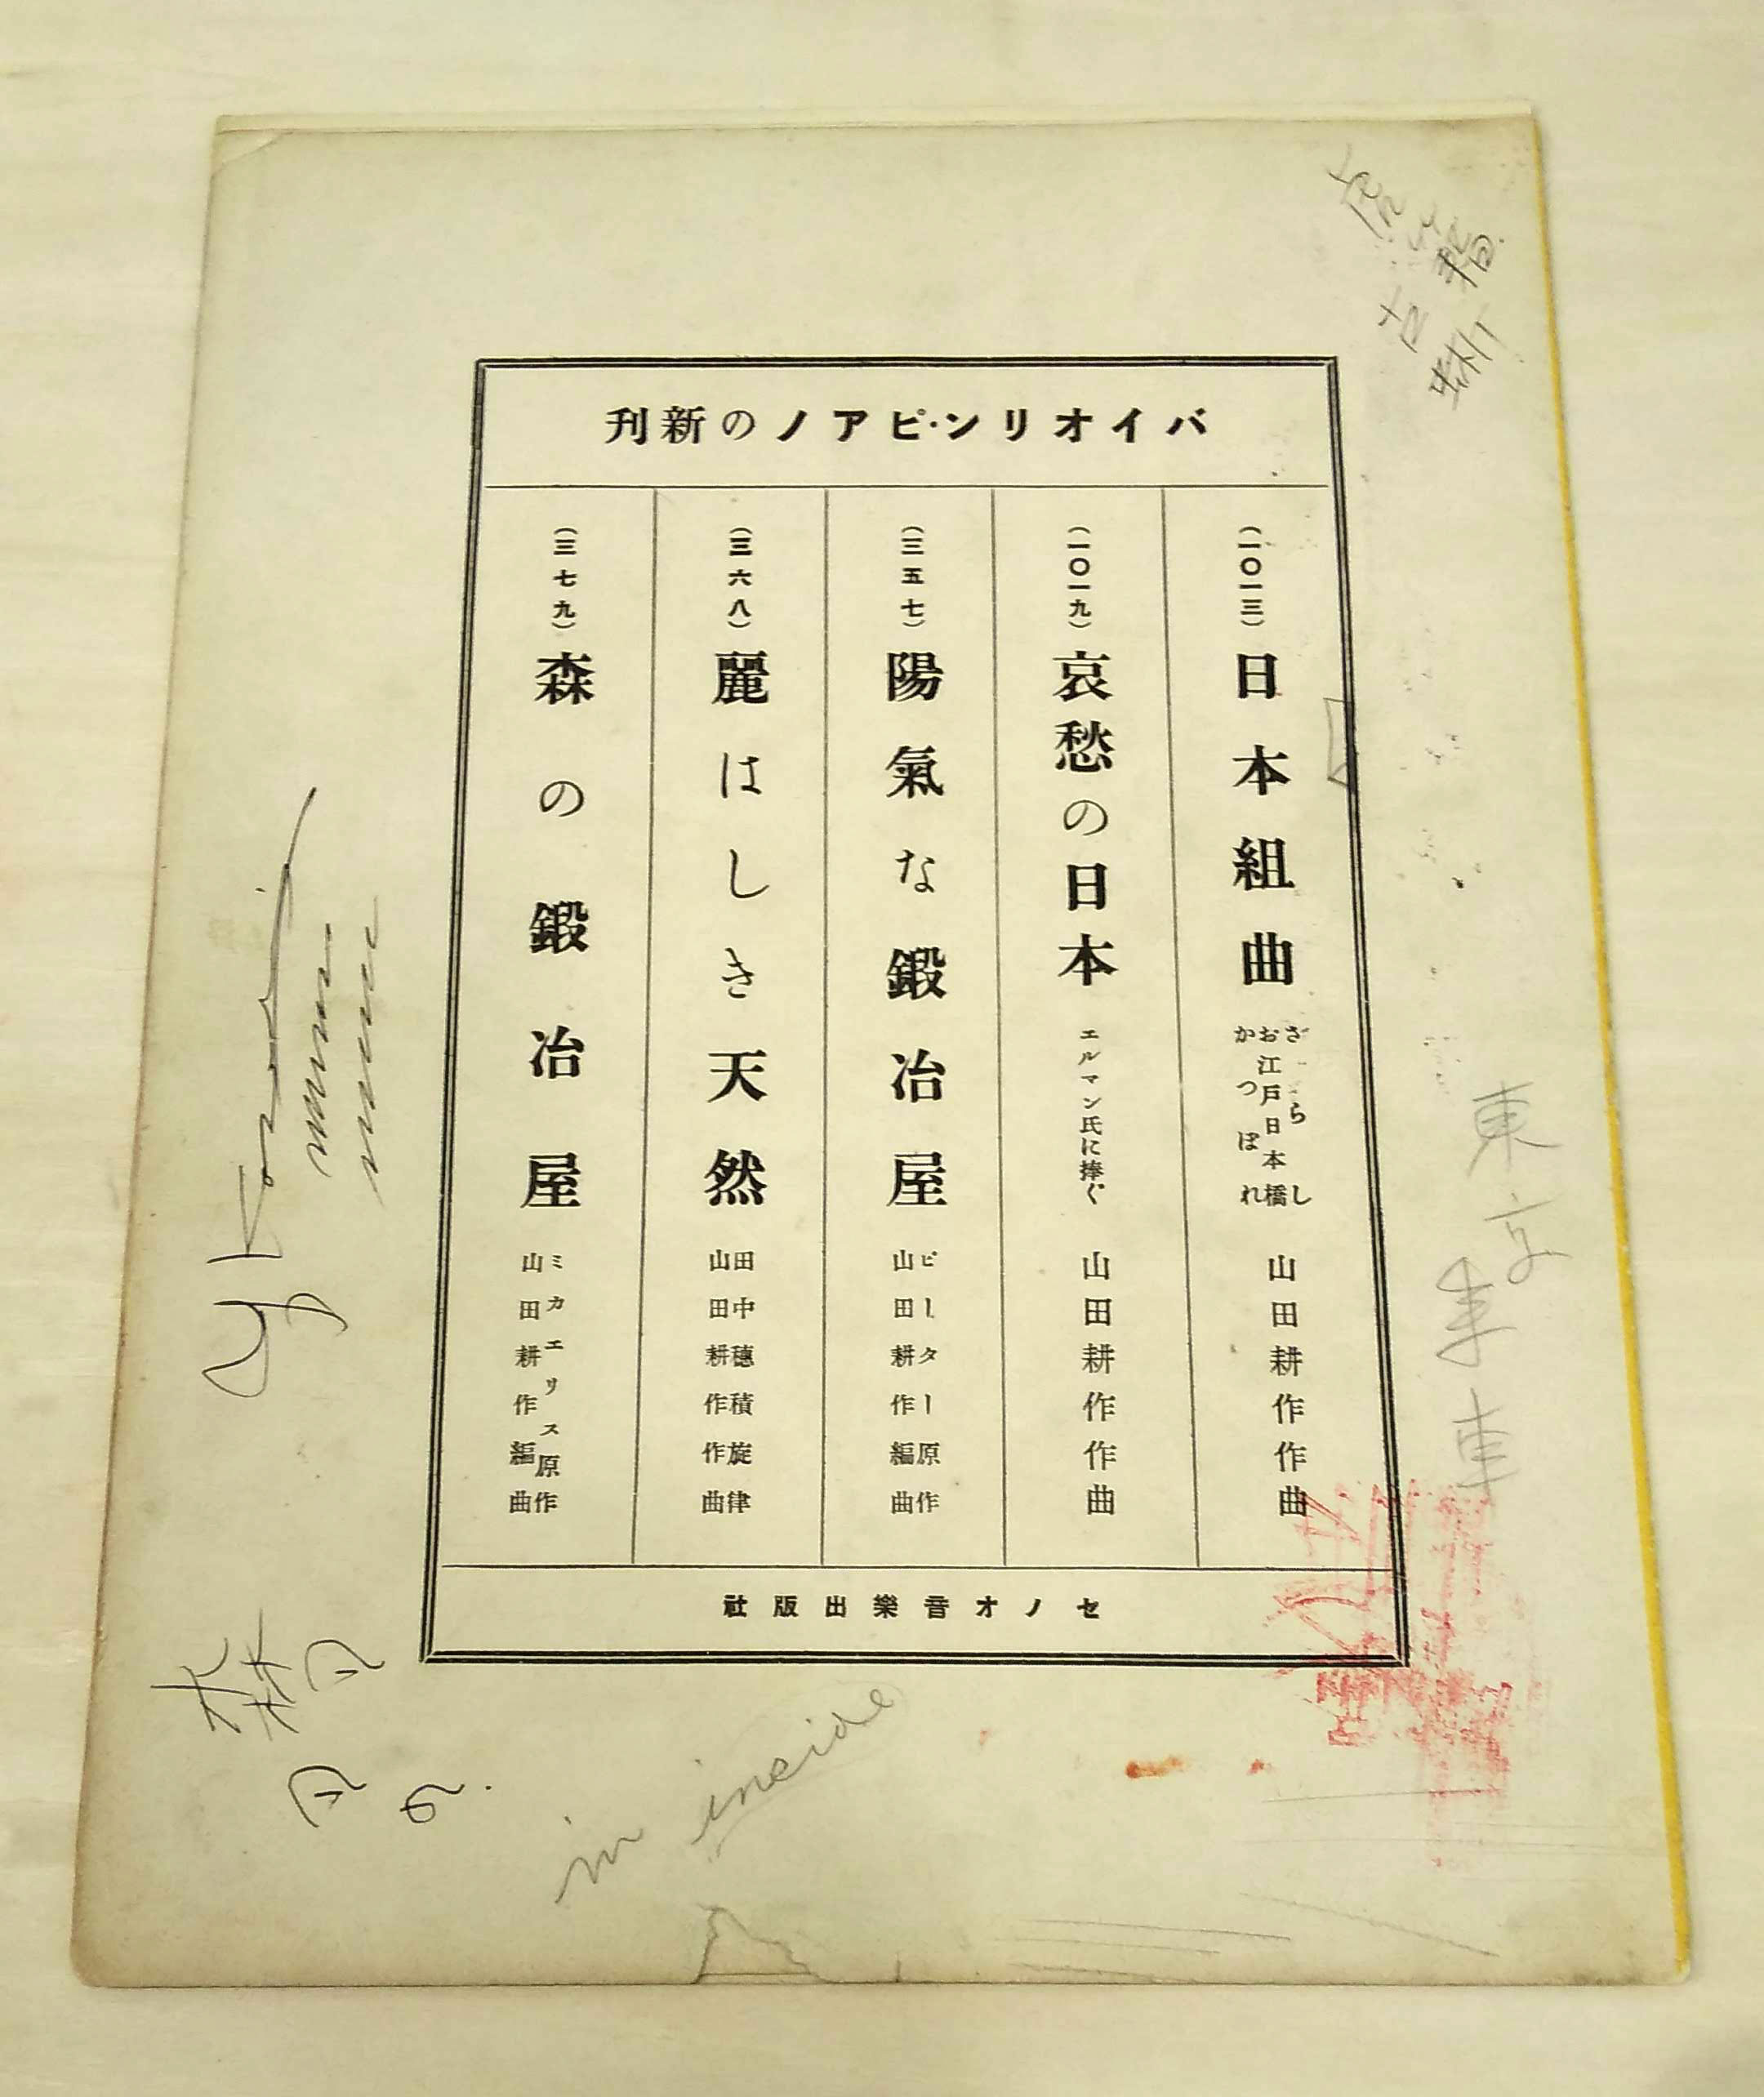 バイオリン・ピアノの新刊
(一〇一三)日本組曲
さらし
お江戸日本橋
かつぽれ
山田耕作作曲
(一〇一九)哀愁の日本
エルマン氏に捧ぐ
山田耕作作曲
(三五七)陽氣な鍛冶屋
ピーター原作
山田耕作編曲
(三六八)麗はしき天然
田中穗積旋律
山田耕作作曲
(三七九)森の鍛冶屋
ミカエリス原作
山田耕作編曲
セノオ音樂出版社
東京
車
in inside